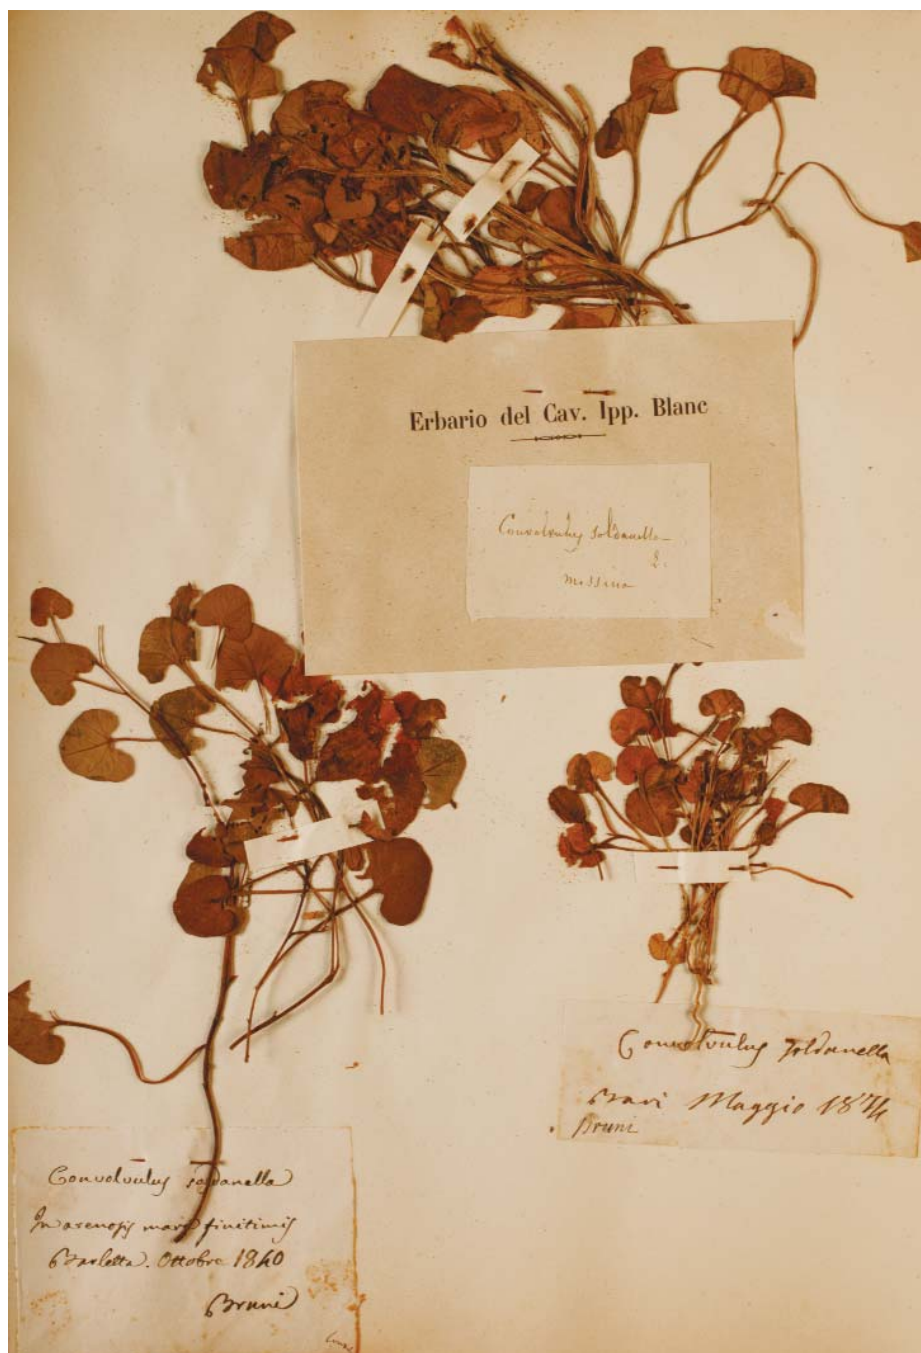 Erbario del Cav. Ipp. Blanc
Convolvulus soldanella
L.
Messina
Convolvulus soldanella
Bari Maggio 1874
Bruni
Convolvulus soldanella
In arenosis maris finitimis
Barletta. Ottobre 1840
Bruni